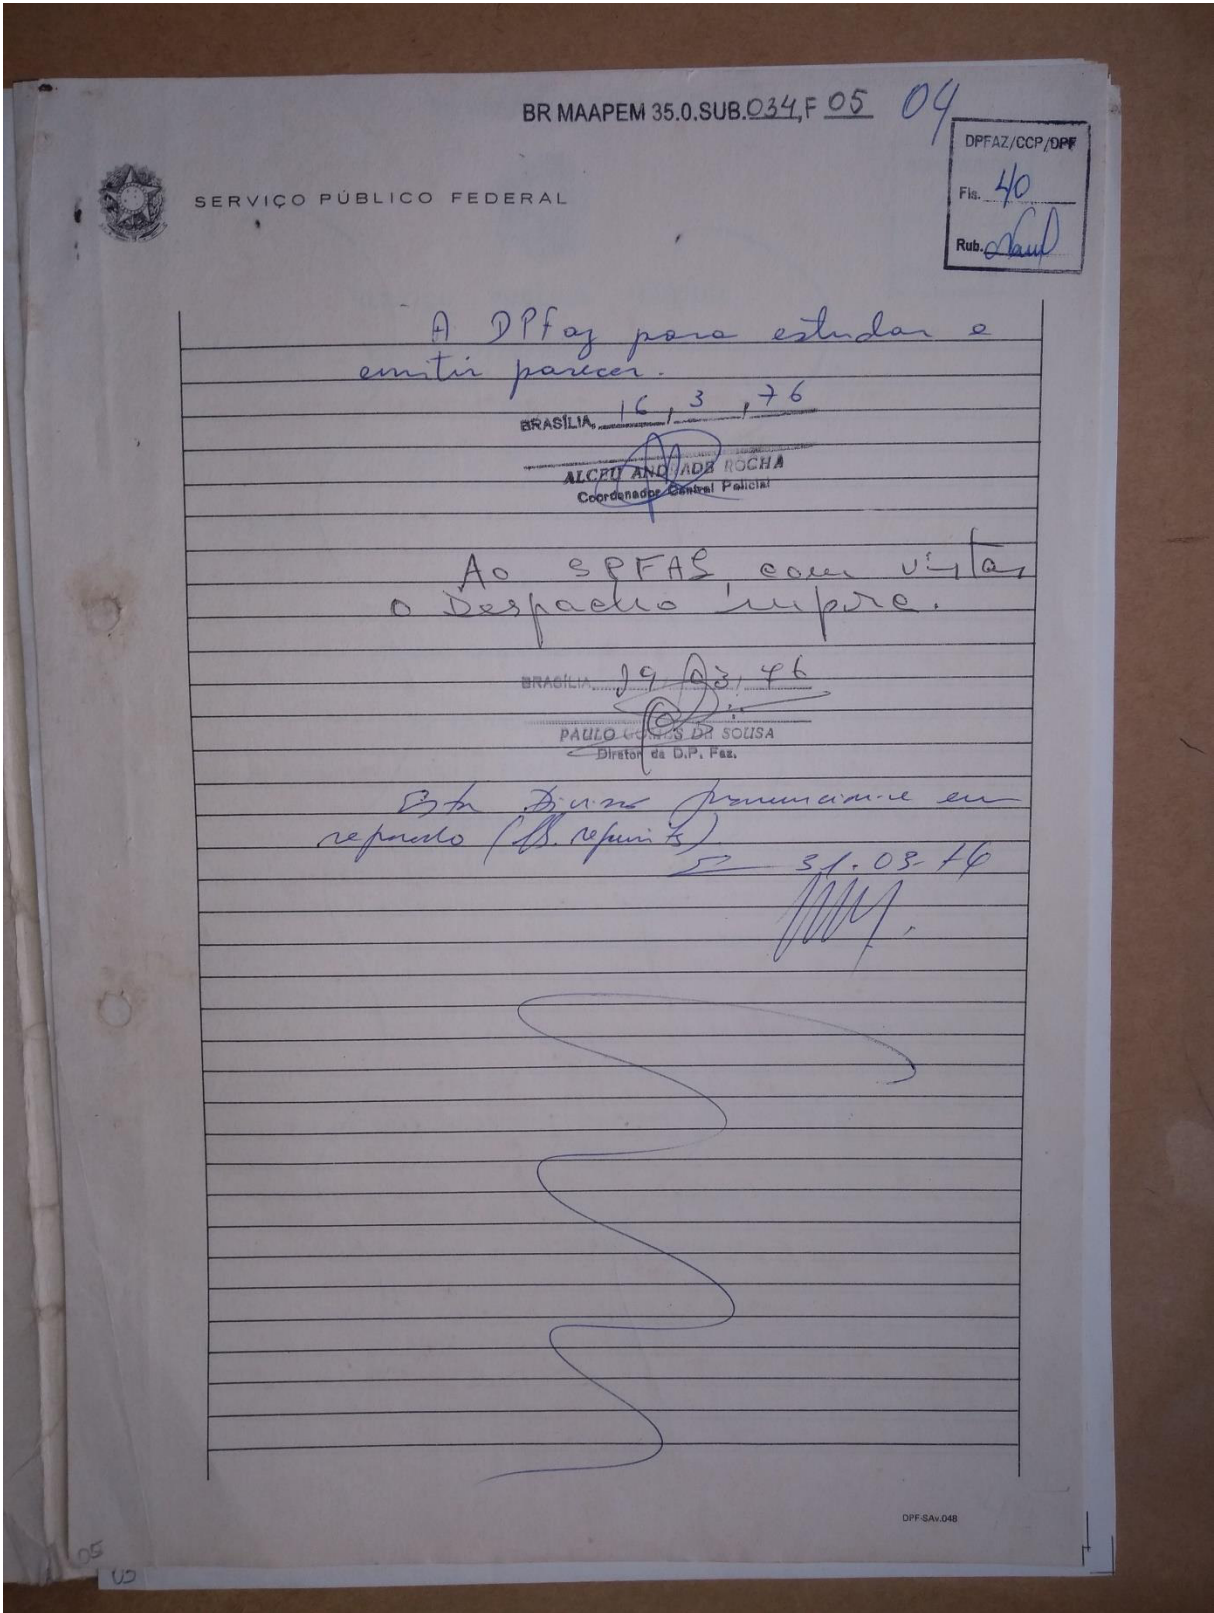 BR MAAPEM 35.0.SUB.034,F 05 04
DPFAZ/CCP/DPF
Fls. 40
Rub.
SERVIÇO PÚBLICO FEDERAL
A DPFaz para estudar e
emitir parecer.
BRASÍLIA, 16, 3, 76
ALCEU ANDRADE ROCHA
Coordenador Central Policial
Ao SPFAS, com vistas
o Despacho supra.
BRASÍLIA, 19, 03, 76
PAULO GOMES DE SOUSA
Diretor da D.P. Faz.
Esta Divisão em
31.03.76
DPF-SAv.048
05